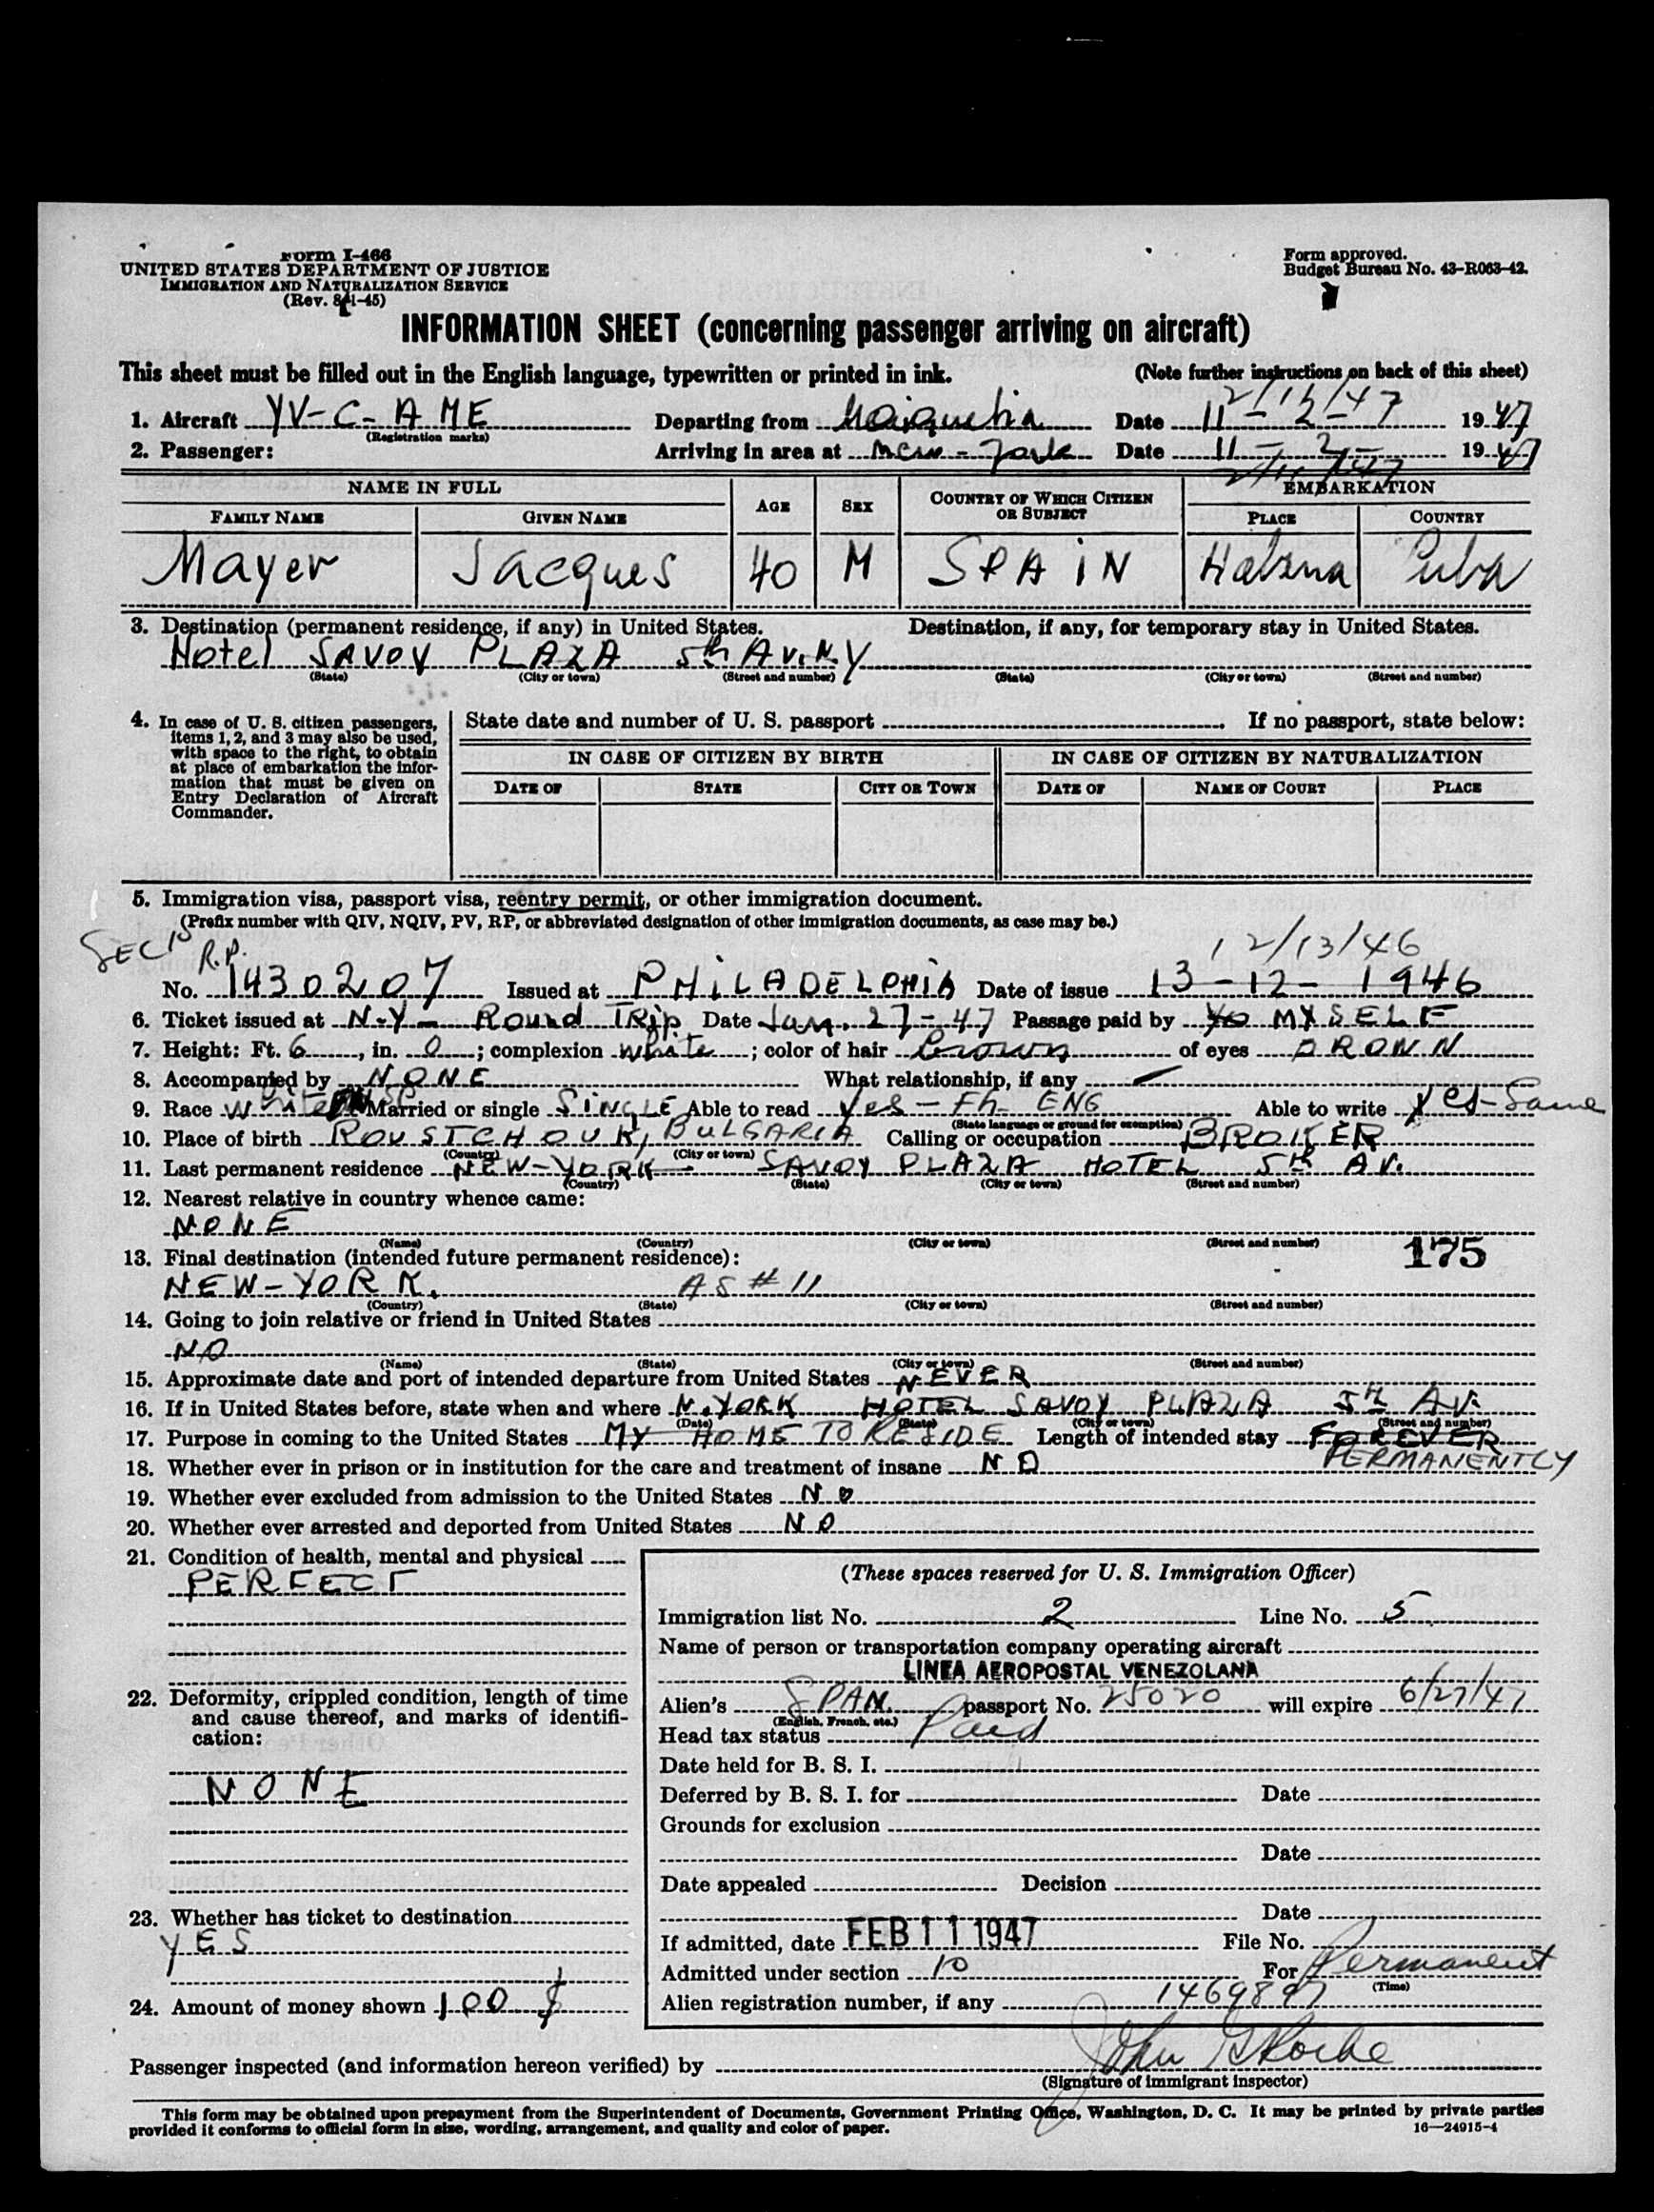 Form I-466
UNITED STATES DEPARTMENT OF JUSTICE
IMMIGRATION AND NATURALIZATION SERVICE
(Rev. 8-1-45)
Form approved.
Budget Bureau No. 43-R063-42.
INFORMATION SHEET (concerning passenger arriving on aircraft)
This sheet must be filled out in the English language, typewritten or printed in ink. (Note further instructions on back of this sheet)
2/11/47
1. Aircraft YV-C-AME Departing from Maiquetia Date 11-2-47 1947
(Registration marks)
2. Passenger: Arriving in area at New-York Date 11-2- 1947
2/11/47
NAME IN FULL AGE SEX COUNTRY OF WHICH CITIZEN OR SUBJECT EMBARKATION
FAMILY NAME GIVEN NAME PLACE COUNTRY
Mayer Jacques 40 M SPAIN Habana Cuba
3. Destination (permanent residence, if any) in United States. Destination, if any, for temporary stay in United States.
Hotel SAVOY PLAZA 5th AV. N.Y
(State) (City or town) (Street and number) (State) (City or town) (Street and number)
4. In case of U. S. citizen passengers,
items 1, 2, and 3 may also be used,
with space to the right, to obtain
at place of embarkation the infor-
mation that must be given on
Entry Declaration of Aircraft
Commander.
State date and number of U. S. passport . If no passport, state below:
IN CASE OF CITIZEN BY BIRTH IN CASE OF CITIZEN BY NATURALIZATION
DATE OF STATE CITY OR TOWN DATE OF NAME OF COURT PLACE
5. Immigration visa, passport visa, reentry permit, or other immigration document.
(Prefix number with QIV, NQIV, PV, RP, or abbreviated designation of other immigration documents, as case may be.)
SEC 10 R.P. 12/13/46
No. 1430207 Issued at PHILADELPHIA Date of issue 13-12-1946
6. Ticket issued at N-Y- Round TRip Date Jan. 27-47 Passage paid by MYSELF
7. Height: Ft. 6, in. 0; complexion white; color of hair Brown of eyes BROWN
8. Accompanied by NONE What relationship, if any —
9. Race White Married or single SINGLE Able to read Yes - Fh- ENG Able to write yes-Same
(State language or ground for exemption)
10. Place of birth ROUSTCHOUK, BULGARIA Calling or occupation BROKER
(Country) (City or town)
11. Last permanent residence NEW-YORK- SAVOY PLAZA HOTEL 5th AV.
(Country) (State) (City or town) (Street and number)
12. Nearest relative in country whence came:
NONE
(Name) (Country) (City or town) (Street and number)
13. Final destination (intended future permanent residence): 175
NEW-YORK. AS # 11
(Country) (State) (City or town) (Street and number)
14. Going to join relative or friend in United States
NO
(Name) (State) (City or town) (Street and number)
15. Approximate date and port of intended departure from United States NEVER
16. If in United States before, state when and where N.YORK HOTEL SAVOY PLAZA 5th AV.
(Date) (State) (City or town) (Street and number)
17. Purpose in coming to the United States MY HOME TO RESIDE Length of intended stay FOREVER
PERMANENTLY
18. Whether ever in prison or in institution for the care and treatment of insane NO
19. Whether ever excluded from admission to the United States NO
20. Whether ever arrested and deported from United States NO
21. Condition of health, mental and physical
PERFECT
22. Deformity, crippled condition, length of time
and cause thereof, and marks of identifi-
cation:
NONE
23. Whether has ticket to destination
YES
24. Amount of money shown 100 $
(These spaces reserved for U. S. Immigration Officer)
Immigration list No. 2 Line No. 5
Name of person or transportation company operating aircraft
LINEA AEROPOSTAL VENEZOLANA
Alien's SPAN. passport No. 25020 will expire 6/27/47
(English, French, etc.)
Head tax status Paid
Date held for B. S. I.
Deferred by B. S. I. for Date
Grounds for exclusion
Date
Date appealed Decision
Date
If admitted, date FEB 11 1947 File No.
Admitted under section 10 For Permanent
(Time)
Alien registration number, if any 1469897
Passenger inspected (and information hereon verified) by John G Roche
(Signature of immigrant inspector)
This form may be obtained upon prepayment from the Superintendent of Documents, Government Printing Office, Washington, D. C. It may be printed by private parties
provided it conforms to official form in size, wording, arrangement, and quality and color of paper. 16—24915-4